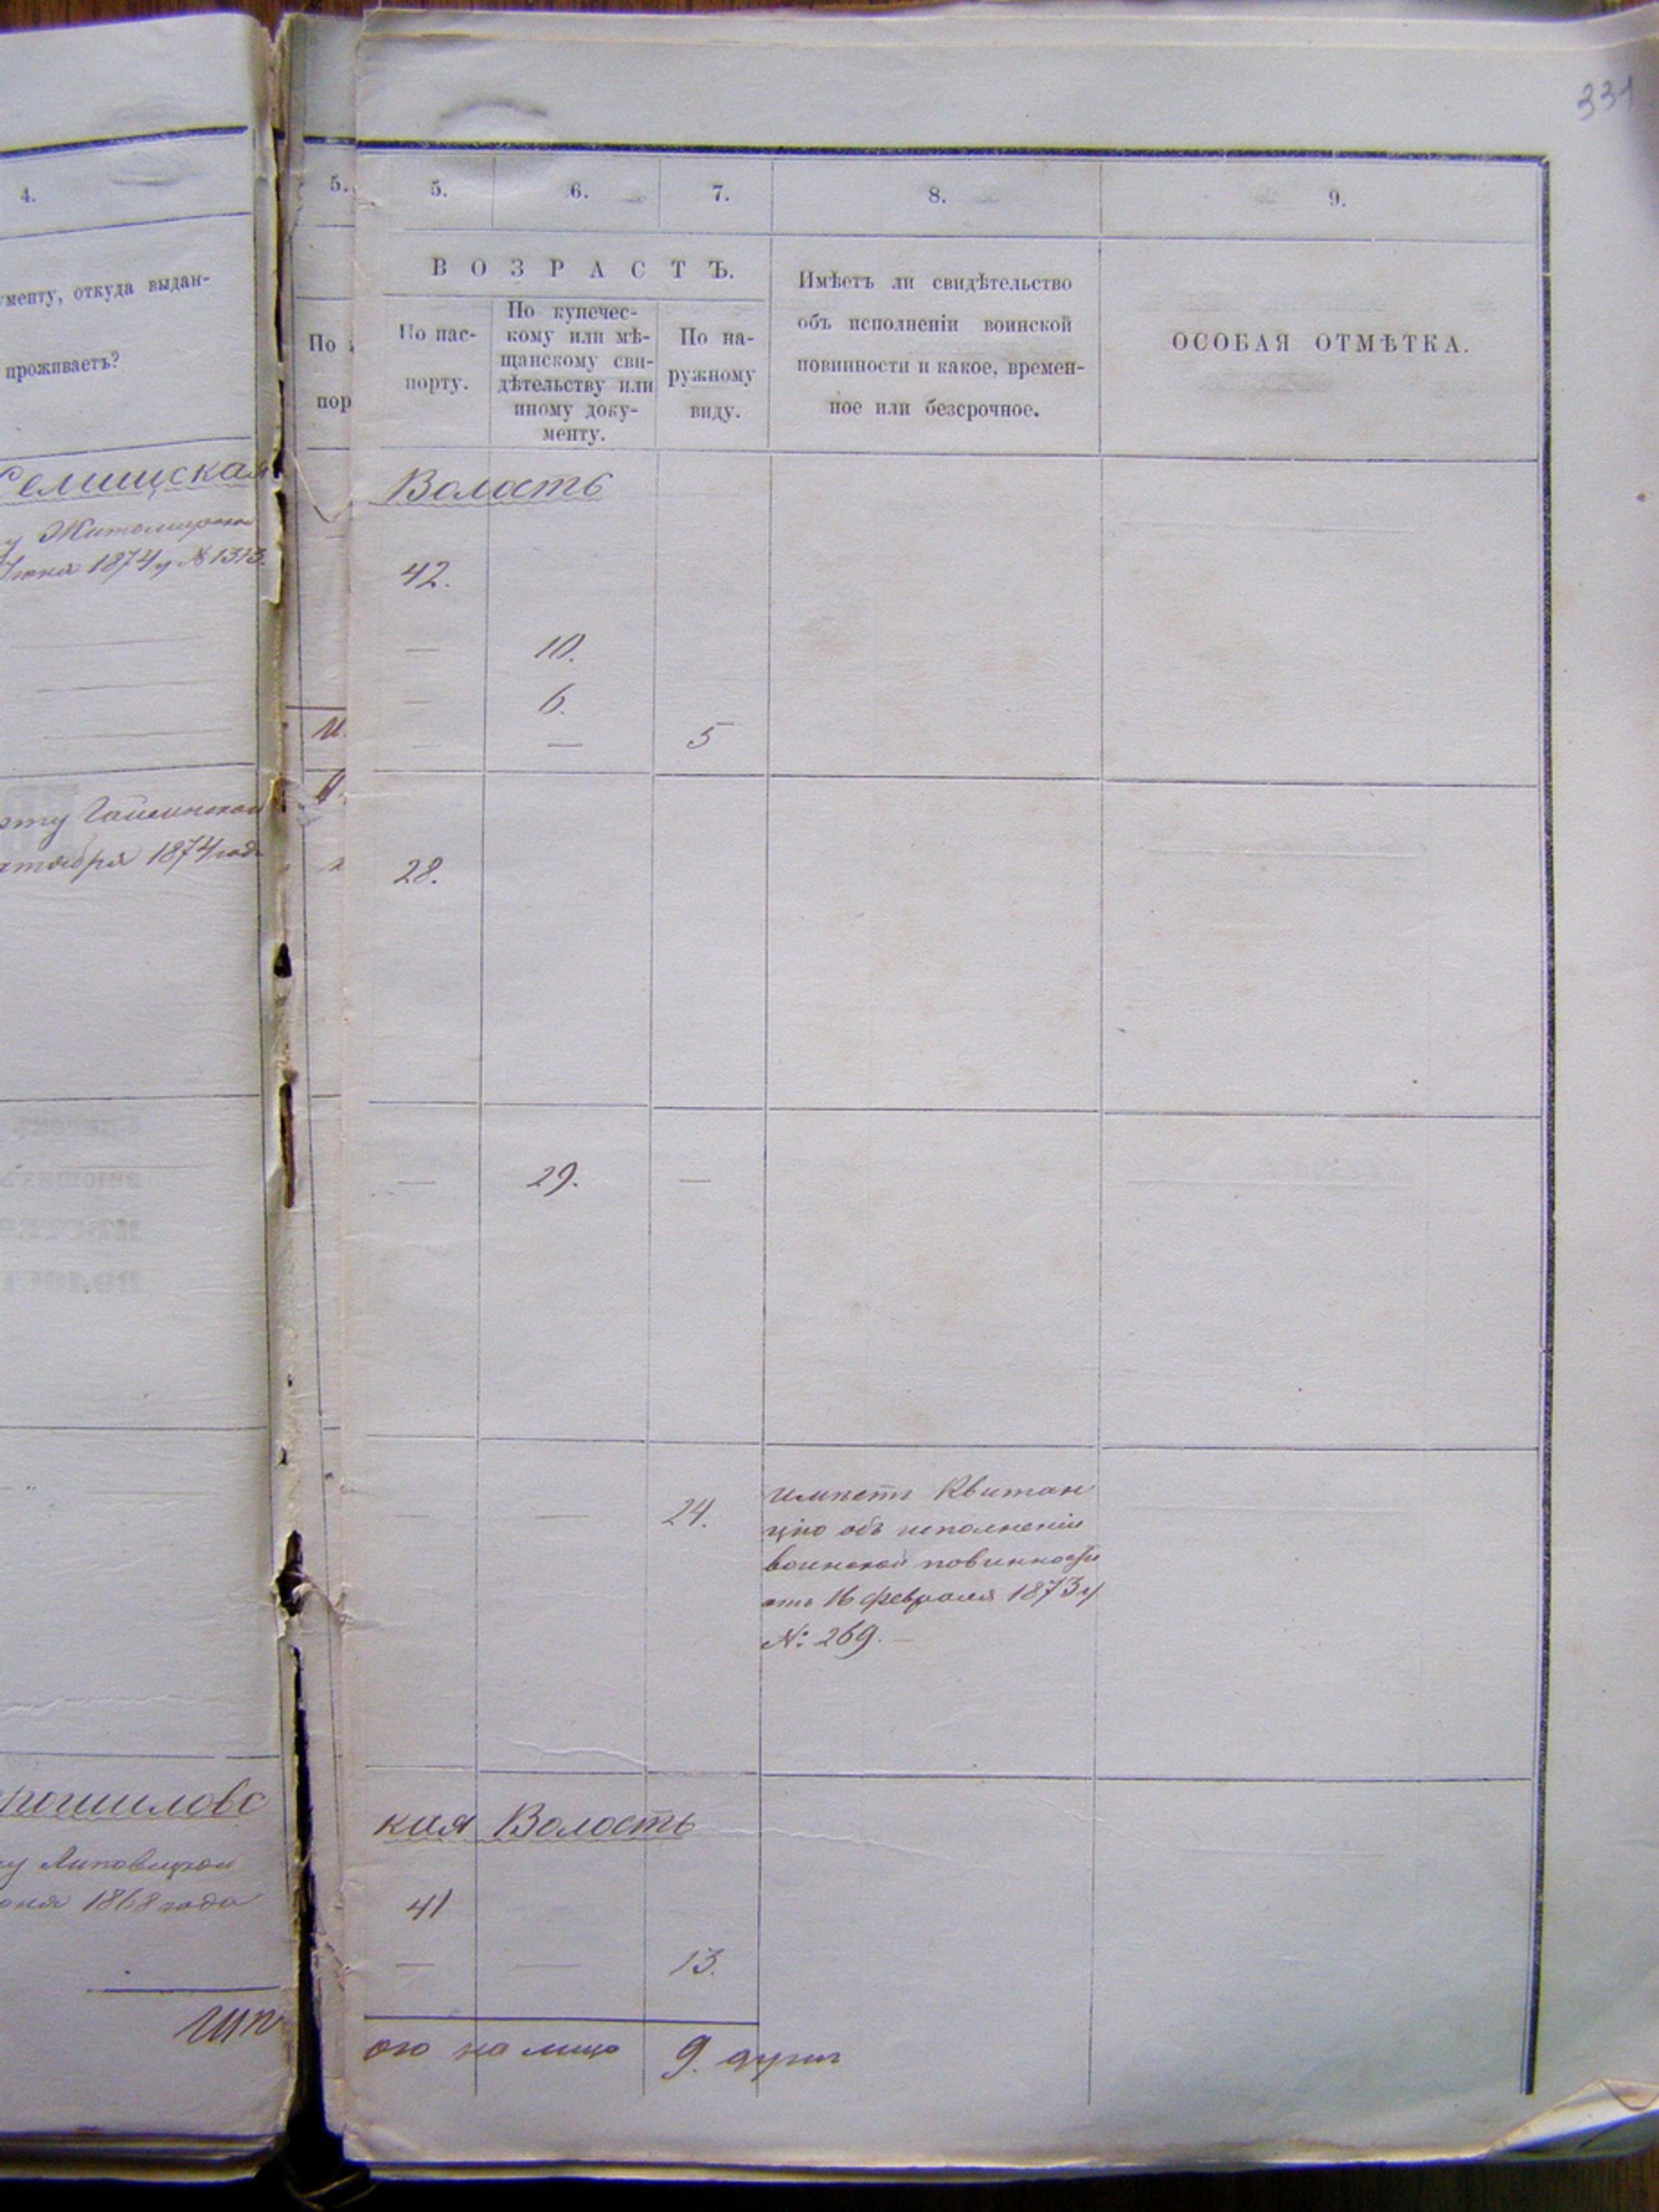 331
4.
ументу, откуда выдан-
проживаетъ?
Селищская
Житомирской
Июня 1874 г № 1313.
Гайсинской
октября 1874 года
рошиловс
Липовецкой
1868 года
Ито
5.
По
пор
5.
6.
7.
8.
9.
ВОЗРАСТЪ.
По пас-
порту.
По купечес-
кому или мѣ-
щанскому сви-
дѣтельству или
иному доку-
менту.
По на-
ружному
виду.
Имѣетъ ли свидѣтельство
объ исполненіи воинской
повинности и какое, времен-
ное или безсрочное.
ОСОБАЯ ОТМѢТКА.
Волость
42.
— 10.
— 6.
— — 5
28.
— 29. —
— — 24.
имѣетъ Квитан
цію объ исполненіи
воинской повинности
отъ 16 февраля 1873 г
№: 269. —
кая Волость
41
— — 13.
ого на лицо 9. душъ